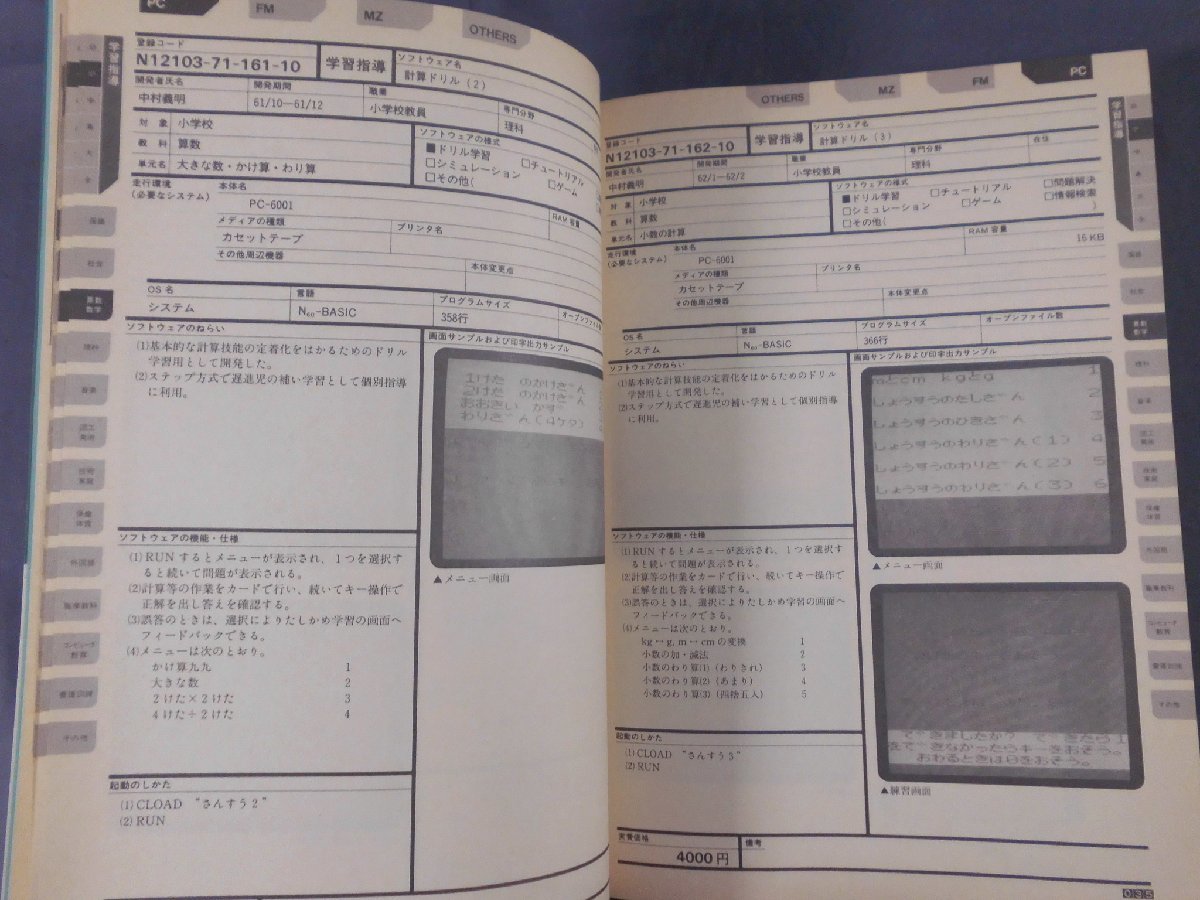 PC
FM
MZ
OTHERS
学習指導
登録コード
N12103-71-161-10
学習指導
ソフトウェア名
計算ドリル (2)
開発者氏名
中村義明
開発期間
61/10—61/12
職業
小学校教員
専門分野
理科
対象 小学校
教科 算数
単元名 大きな数・かけ算・わり算
ソフトウェアの様式
■ドリル学習
□チュートリアル
□シミュレーション
□ゲーム
□その他(
走行環境
(必要なシステム)
本体名
PC-6001
RAM容量
メディアの種類
カセットテープ
プリンタ名
その他周辺機器
本体変更点
OS名
システム
言語
N60-BASIC
プログラムサイズ
358行
オープンファイル数
ソフトウェアのねらい
(1)基本的な計算技能の定着化をはかるためのドリル
学習用として開発した。
(2)ステップ方式で遅進児の補い学習として個別指導
に利用。
画面サンプルおよび印字出力サンプル
1けた のかけざん
2けた のかけざん
おおきい かず
わりざん(4ケタ)
▲メニュー画面
ソフトウェアの機能・仕様
(1)RUNするとメニューが表示され、1つを選択す
ると続いて問題が表示される。
(2)計算等の作業をカードで行い、続いてキー操作で
正解を出し答えを確認する。
(3)誤答のときは、選択によりたしかめ学習の画面へ
フィードバックできる。
(4)メニューは次のとおり。
かけ算九九 1
大きな数 2
2けた×2けた 3
4けた÷2けた 4
起動のしかた
(1)CLOAD "さんすう2"
(2)RUN
国語
社会
算数
数学
理科
音楽
図工
美術
技術
家庭
保健
体育
外国語
職業教科
コンピュータ
教育
養護訓練
その他
OTHERS
MZ
FM
PC
学習指導
登録コード
N12103-71-162-10
学習指導
ソフトウェア名
計算ドリル (3)
開発者氏名
中村義明
開発期間
62/1—62/2
職業
小学校教員
専門分野
理科
対象 小学校
教科 算数
単元名 小数の計算
ソフトウェアの様式
■ドリル学習
□チュートリアル
□問題解決
□シミュレーション
□ゲーム
□情報検索
□その他( )
走行環境
(必要なシステム)
本体名
PC-6001
RAM容量
16KB
メディアの種類
カセットテープ
プリンタ名
その他周辺機器
本体変更点
OS名
システム
言語
N60-BASIC
プログラムサイズ
366行
オープンファイル数
ソフトウェアのねらい
(1)基本的な計算技能の定着化をはかるためのドリル
学習用として開発した。
(2)ステップ方式で遅進児の補い学習として個別指導
に利用。
画面サンプルおよび印字出力サンプル
mとcm kgとg 1
しょうすうのたしざん 2
しょうすうのひきざん 3
しょうすうのわりざん(1) 4
しょうすうのわりざん(2) 5
しょうすうのわりざん(3) 6
▲メニュー画面
ソフトウェアの機能・仕様
(1)RUNするとメニューが表示され、1つを選択す
ると続いて問題が表示される。
(2)計算等の作業をカードで行い、続いてキー操作で
正解を出し答えを確認する。
(3)誤答のときは、選択によりたしかめ学習の画面へ
フィードバックできる。
(4)メニューは次のとおり。
kg↔g, m↔cmの変換 1
小数の加・減法 2
小数のわり算(1)(わりきれ) 3
小数のわり算(2)(あまり) 4
小数のわり算(3)(四捨五入) 5
できましたか? できたら1
をできなかったらキーをおそう。
おわるときは0をおそう。
▲練習画面
起動のしかた
(1)CLOAD "さんすう3"
(2)RUN
実費価格
4000円
備考
035